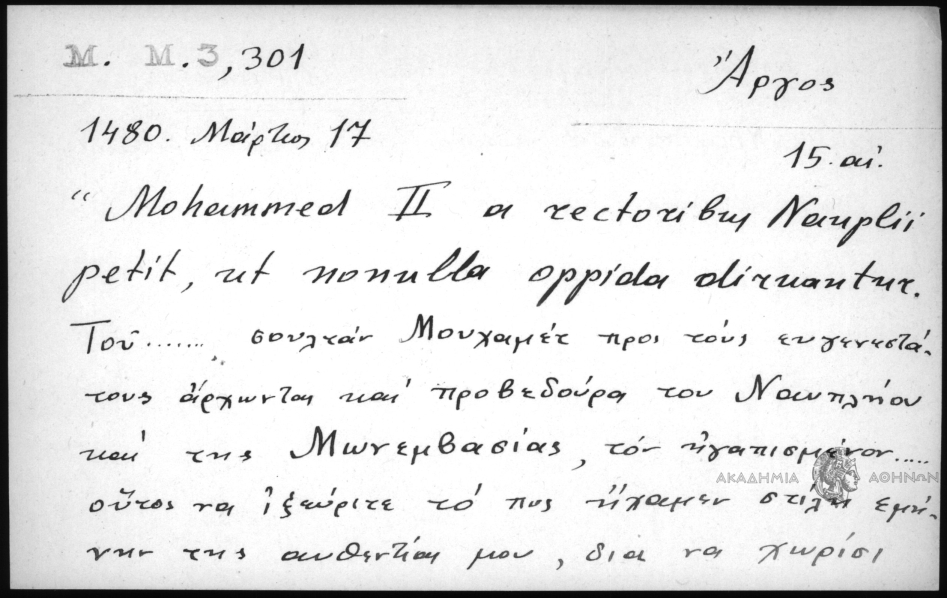 M. M.3, 301
Ἄργος
1480. Μάρτιος 17
15. αἰ.
“Mohammed II a rectoribus Nauplii
petit, ut nonulla oppida diruantur.
Τοῦ ....... σουλτάν Μουχαμέτ προς τούς ευγενεστά-
τους ἄρχωντας καί προβεδούρα του Ναυπλήου
καί της Μωνεμβασίας, τόν ἠγαπισμένον .....
ΑΚΑΔΗΜΙΑ ΑΘΗΝΩΝ
οὕτος να ἰξεύριτε τό πως ἤχαμεν στίλη εμή-
νην της αυθεντίας μου, δια να χωρίσι